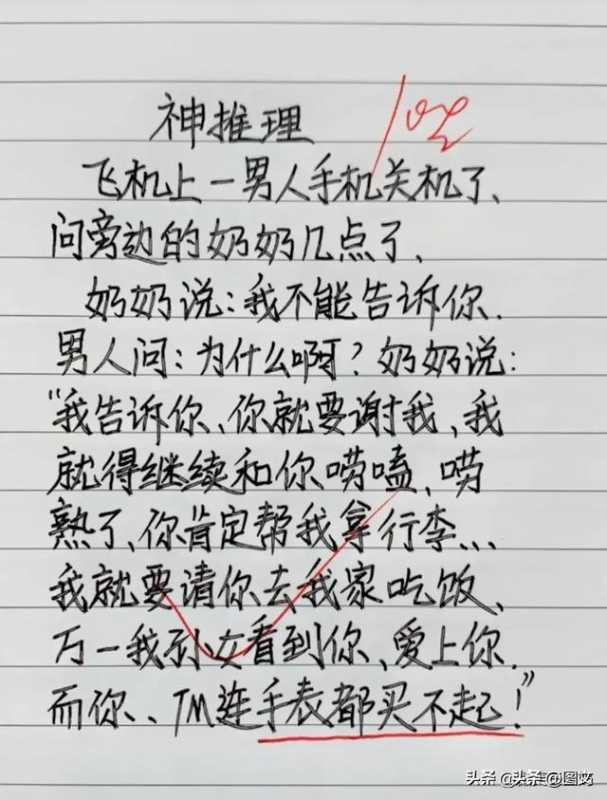 神推理
100分
飞机上一男人手机关机了、
问旁边的奶奶几点了、
奶奶说:我不能告诉你.
男人问:为什么啊?奶奶说:
"我告诉你、你就要谢我、我
就得继续和你唠嗑、唠
熟了、你肯定帮我拿行李...
我就要请你去我家吃饭、
万一我孙女看到你、爱上你.
而你、、TM连手表都买不起!"
头条 @头条@图文